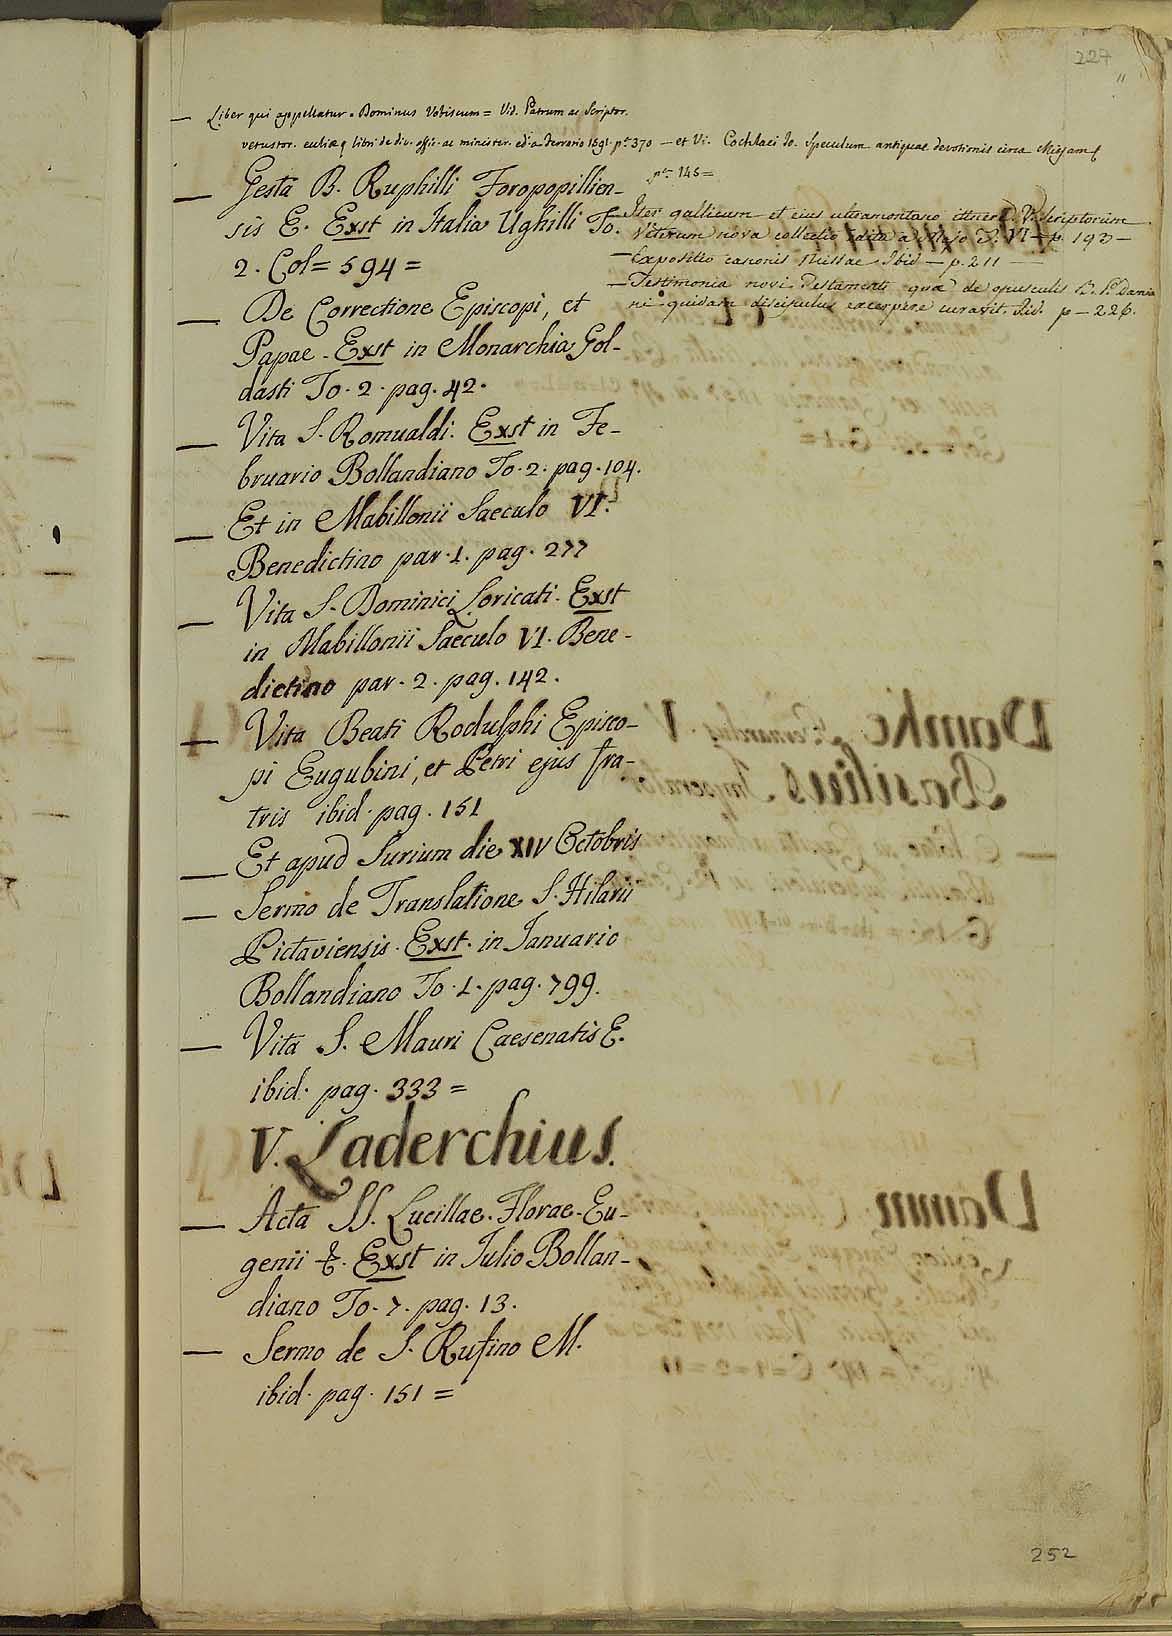 227
— Liber qui appellatur = Dominus Vobiscum = Vid. Patrum ac Scriptor.
vetustor. libri de div. offic. ac minister. 1591. pag. 370 — et Vi. Cochlaei Io. Speculum antiquae devotionis circa Missam
pag. 145 =
— Gesta B. Ruphilli Foropopillien-
sis E. Exst in Italia Ughilli To.
2. Col = 594 =
— Iter gallicum et eius ultramontano itinere V. Scriptorum
Veterum nova collectio edita a Majo T. VI — p. 193 —
— Expositio canonis Missae Ibid — p. 211 —
— Testimonia novi Testamenti quae de opusculis B. P. Damia
ni quidam discipulus excerpere curavit. Ibid. p — 226.
— De Correctione Episcopi, et
Papae - Exst in Monarchia Gol-
dasti To. 2. pag. 42.
— Vita S. Romualdi. Exst in Fe-
bruario Bollandiano To. 2. pag. 104.
— Et in Mabillonii Saeculo VI.
Benedictino par. 1. pag. 277
— Vita S. Dominici Loricati. Exst
in Mabillonii Saeculo VI. Bene-
dictino par. 2. pag. 142.
— Vita Beati Rodulphi Episco-
pi Eugubini, et Petri ejus fra-
tris ibid. pag. 151
— Et apud Surium die XIV Octobris
— Sermo de Translatione S. Hilarii
Pictaviensis. Exst. in Ianuario
Bollandiano To. 1. pag. 799.
— Vita S. Mauri Caesenatis E.
ibid. pag. 333 =
V. Laderchius.
— Acta SS. Lucillae. Florae. Eu-
genii &. Exst in Iulio Bollan-
diano To. 7. pag. 13.
— Sermo de S. Rufino M.
ibid. pag. 151 =
252